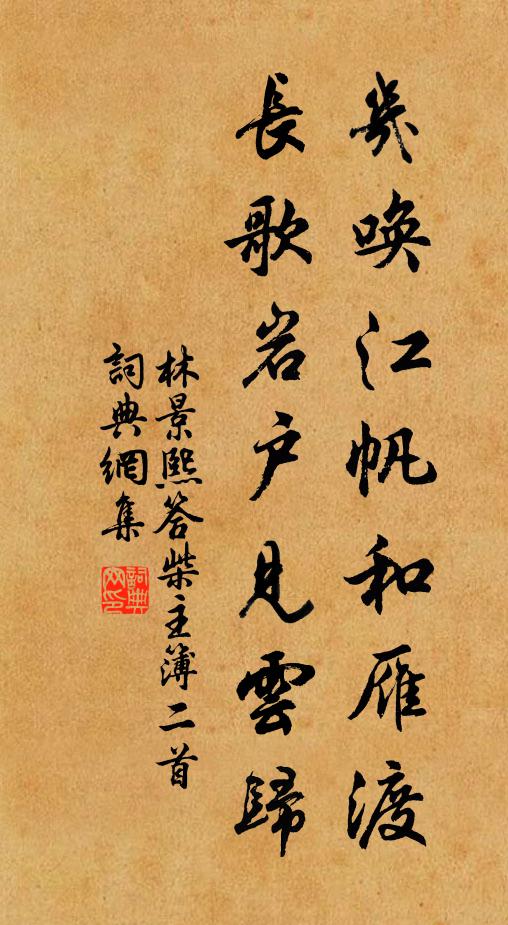 幾喚江帆和雁渡
長歌岩户見雲歸
林景熙答柴主簿二首
詞典網集
詞典
网印